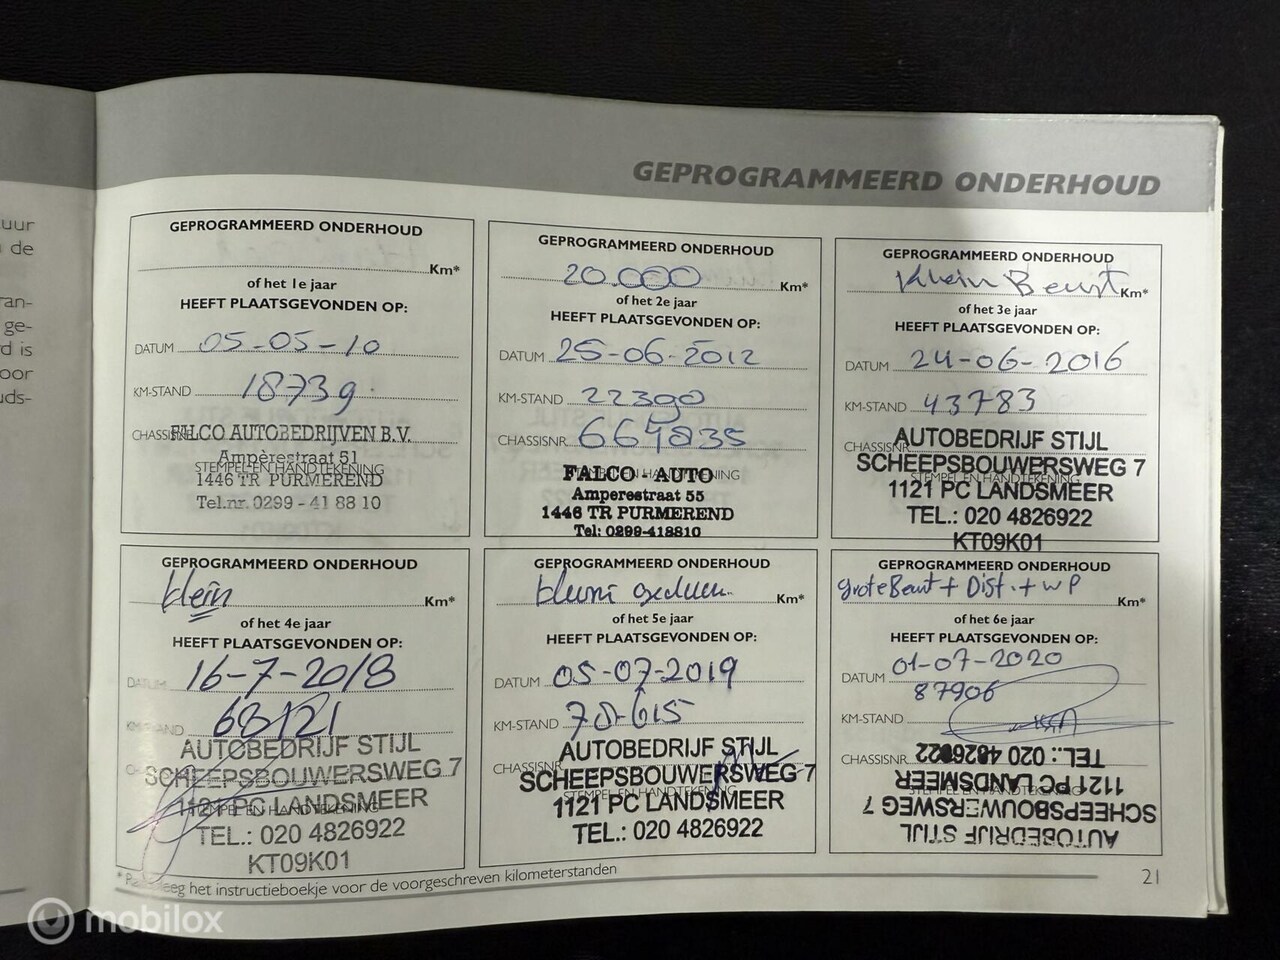 uur
de
ran-
ge-
d is
oor
uds-
GEPROGRAMMEERD ONDERHOUD
GEPROGRAMMEERD ONDERHOUD
Km*
of het 1e jaar
HEEFT PLAATSGEVONDEN OP:
DATUM 05-05-10
KM-STAND 18739
CHASSISNR.
FALCO AUTOBEDRIJVEN B.V.
Ampèrestraat 51
STEMPEL EN HANDTEKENING
1446 TR PURMEREND
Tel.nr. 0299 - 41 88 10
GEPROGRAMMEERD ONDERHOUD
20.000 Km*
of het 2e jaar
HEEFT PLAATSGEVONDEN OP:
DATUM 25-06-2012
KM-STAND 22390
CHASSISNR.
FALCO - AUTO
STEMPEL EN HANDTEKENING
Amperestraat 55
1446 TR PURMEREND
Tel: 0299-418810
GEPROGRAMMEERD ONDERHOUD
Klein Beurt Km*
of het 3e jaar
HEEFT PLAATSGEVONDEN OP:
DATUM 24-06-2016
KM-STAND 43783
CHASSISNR.
AUTOBEDRIJF STIJL
SCHEEPSBOUWERSWEG 7
STEMPEL EN HANDTEKENING
1121 PC LANDSMEER
TEL.: 020 4826922
KT09K01
GEPROGRAMMEERD ONDERHOUD
klein Km*
of het 4e jaar
HEEFT PLAATSGEVONDEN OP:
DATUM 16-7-2018
KM-STAND 68121
AUTOBEDRIJF STIJL
SCHEEPSBOUWERSWEG 7
1121 PC LANDSMEER
STEMPEL EN HANDTEKENING
TEL.: 020 4826922
KT09K01
GEPROGRAMMEERD ONDERHOUD
Km*
of het 5e jaar
HEEFT PLAATSGEVONDEN OP:
DATUM 05-07-2019
KM-STAND 78-615
AUTOBEDRIJF STIJL
CHASSISNR.
SCHEEPSBOUWERSWEG 7
STEMPEL EN HANDTEKENING
1121 PC LANDSMEER
TEL.: 020 4826922
GEPROGRAMMEERD ONDERHOUD
grote Beurt + Dist. + WP
Km*
of het 6e jaar
HEEFT PLAATSGEVONDEN OP:
DATUM 01-07-2020
87906
KM-STAND
CHASSISNR.
STEMPEL EN HANDTEKENING
AUTOBEDRIJF STIJL
SCHEEPSBOUWERSWEG 7
1121 PC LANDSMEER
TEL.: 020 4826922
* het instructieboekje voor de voorgeschreven kilometerstanden
21
mobilox